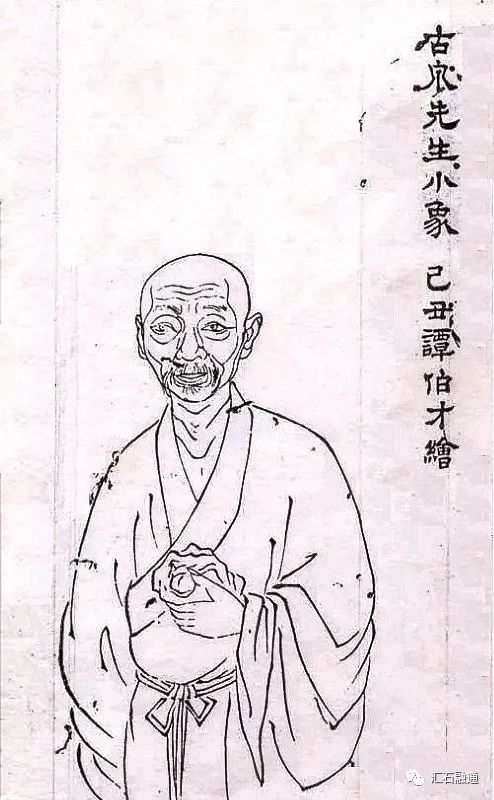 古泉先生小象 己丑譚伯才繪
汇石融通